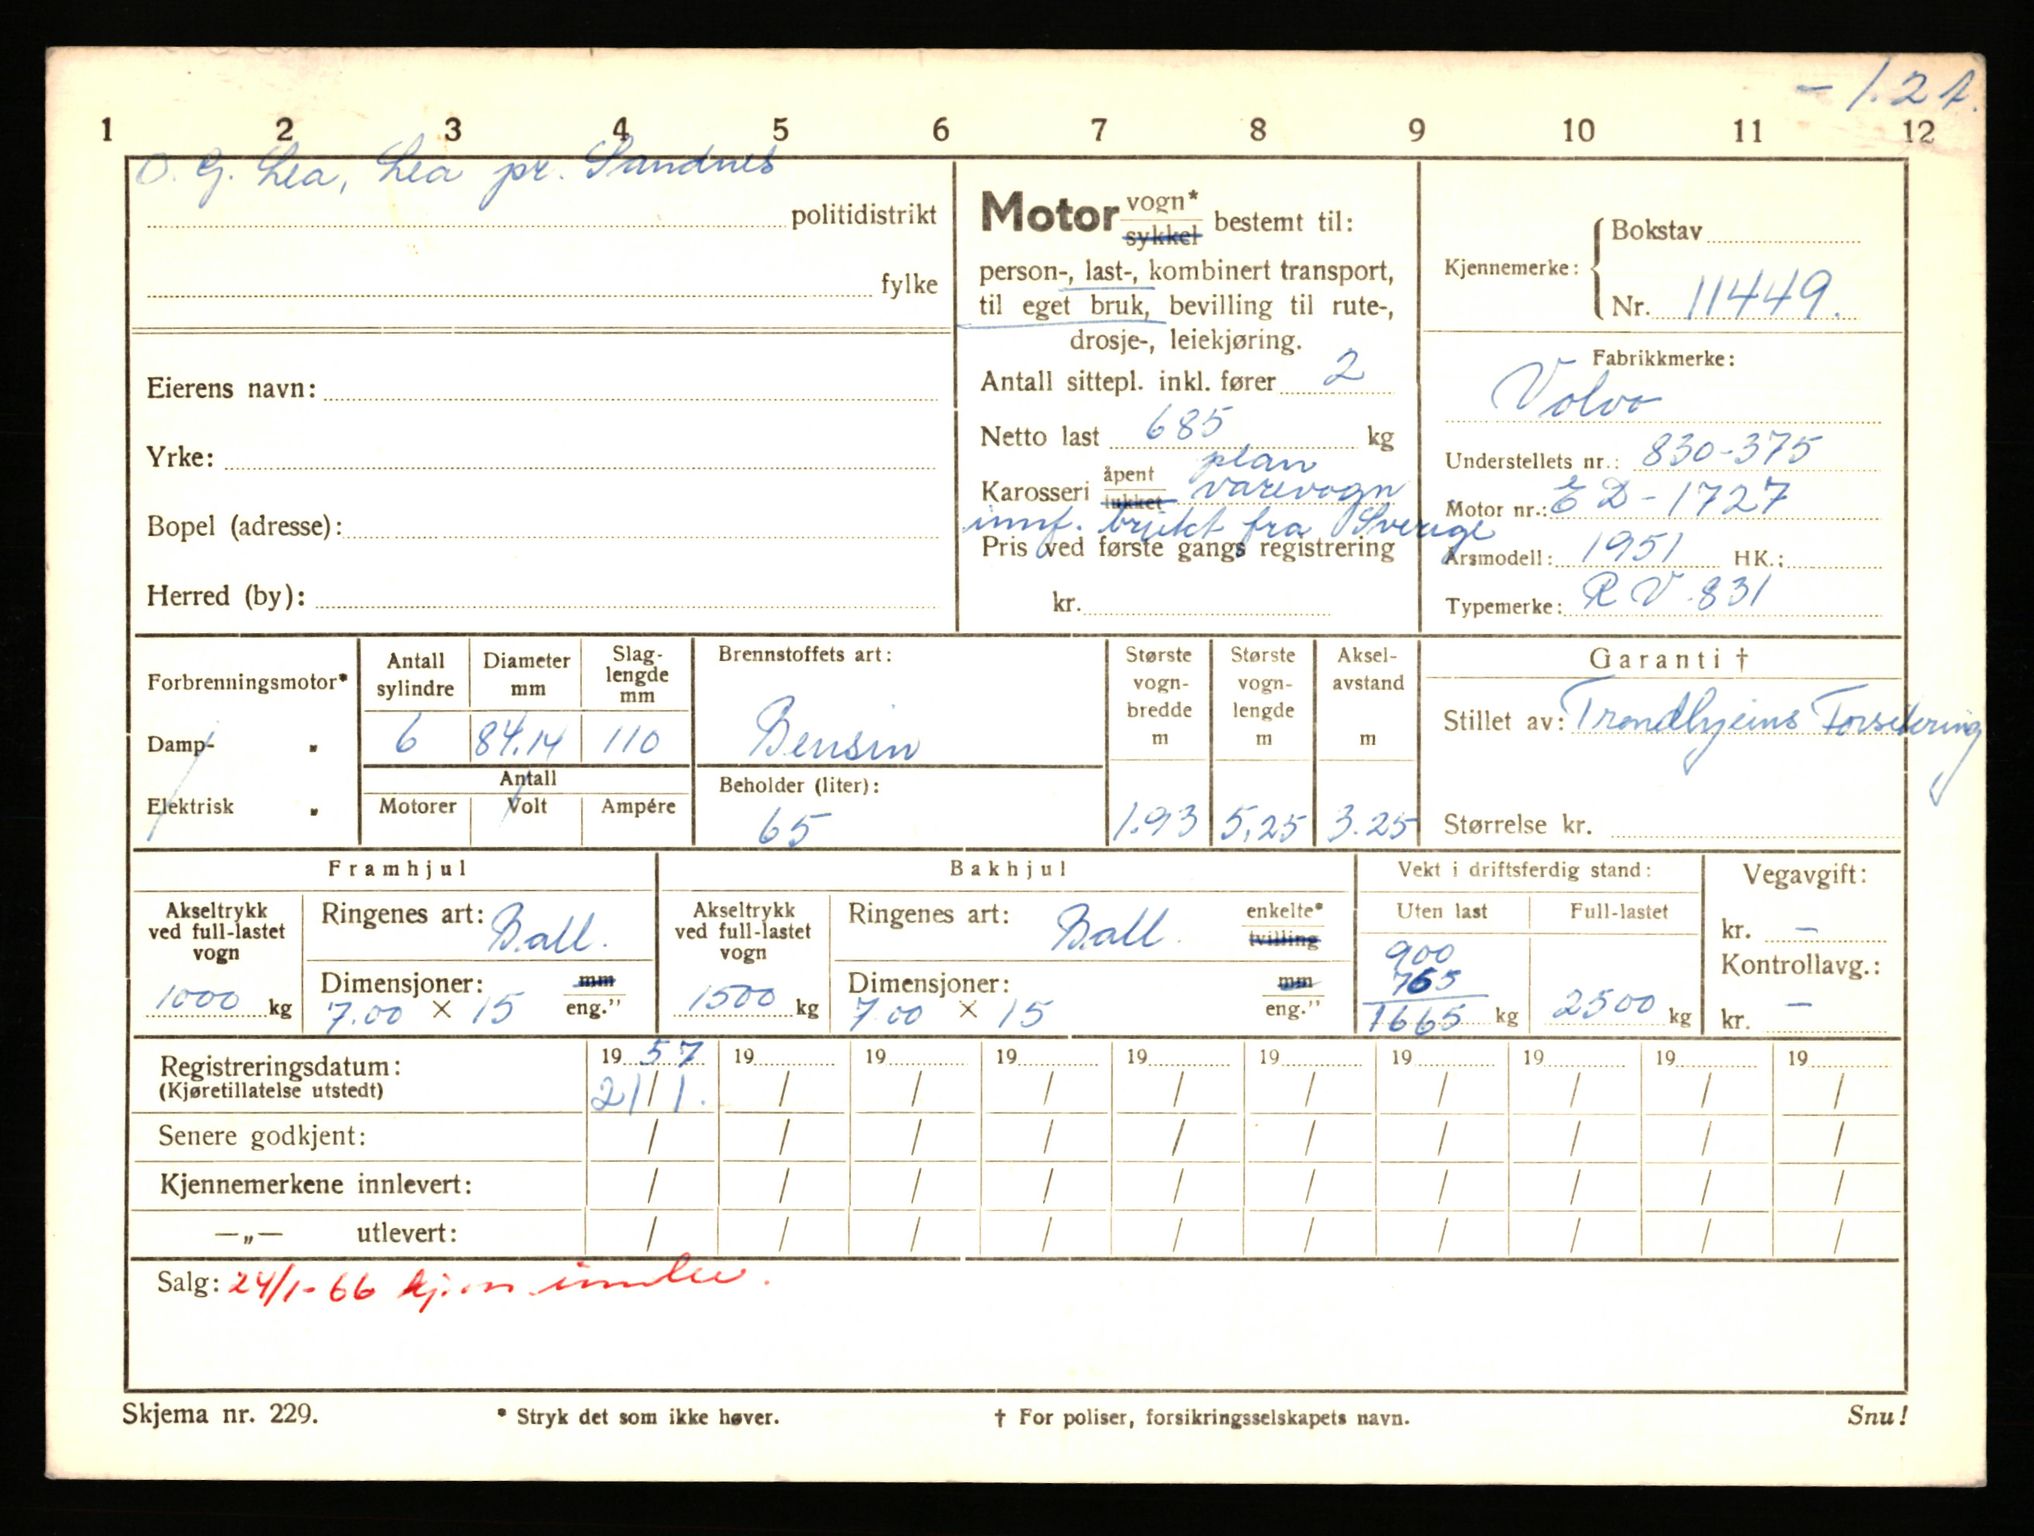 - 1.2 t.
1 2 3 4 5 6 7 8 9 10 11 12
O. G. Lea, Lea pr. Sandnes
politidistrikt
fylke
Eierens navn:
Yrke:
Bopel (adresse):
Herred (by):
Motor vogn* sykkel bestemt til:
person-, last-, kombinert transport,
til eget bruk, bevilling til rute-,
drosje-, leiekjøring.
Antall sittepl. inkl. fører 2
Netto last 685 kg
plan
Karosseri åpent lukket varevogn
innf. brukt fra Sverige
Pris ved første gangs registrering
kr.
Kjennemerke: Bokstav
Nr. 11449.
Fabrikkmerke:
Volvo
Understellets nr.: 830-375
Motor nr.: ED-1727
Årsmodell: 1951 HK.:
Typemerke: RV.831
Forbrenningsmotor*
Damp- „
Elektrisk „
Antall sylindre Diameter mm Slaglengde mm
6 84.14 110
Antall
Motorer Volt Ampére
Brennstoffets art:
Bensin
Beholder (liter):
65
Største vognbredde m Største vognlengde m Akselavstand m
1.93 5,25 3.25
Garanti †
Stillet av: Trondhjems Forsikring
Størrelse kr.
Framhjul
Akseltrykk ved full-lastet vogn
1000 kg
Ringenes art: Ball.
Dimensjoner: mm
7.00 × 15 eng."
Bakhjul
Akseltrykk ved full-lastet vogn
1500 kg
Ringenes art: Ball. enkelte* tvilling
Dimensjoner: mm
7.00 × 15 eng."
Vekt i driftsferdig stand:
Uten last Full-lastet
900
765
1665 kg 2500 kg
Vegavgift:
kr. —
Kontrollavg.:
kr. —
Registreringsdatum: 1957 19 19 19 19 19 19 19 19 19
(Kjøretillatelse utstedt) 21/1. / / / / / / / / /
Senere godkjent: / / / / / / / / / /
Kjennemerkene innlevert: / / / / / / / / / /
—„— utlevert: / / / / / / / / / /
Salg: 24/1-66 kj.m innlev.
Skjema nr. 229. * Stryk det som ikke høver. † For poliser, forsikringsselskapets navn. Snu!